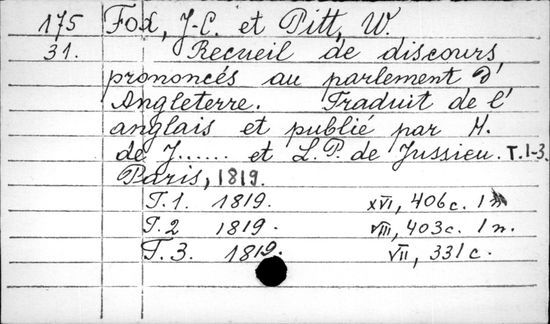 175 Fox, J-C. et Pitt, W.
31. Recueil de discours,
prononcés au parlement d'
Angleterre. Traduit de l'
anglais et publié par H.
de J...... et L.P. de Jussieu. T.1-3.
Paris, 1819.
T.1. 1819. XVI, 406c. 1
T.2 1819. VIII, 403c. 1 л.
T.3. 1819. VII, 331c.